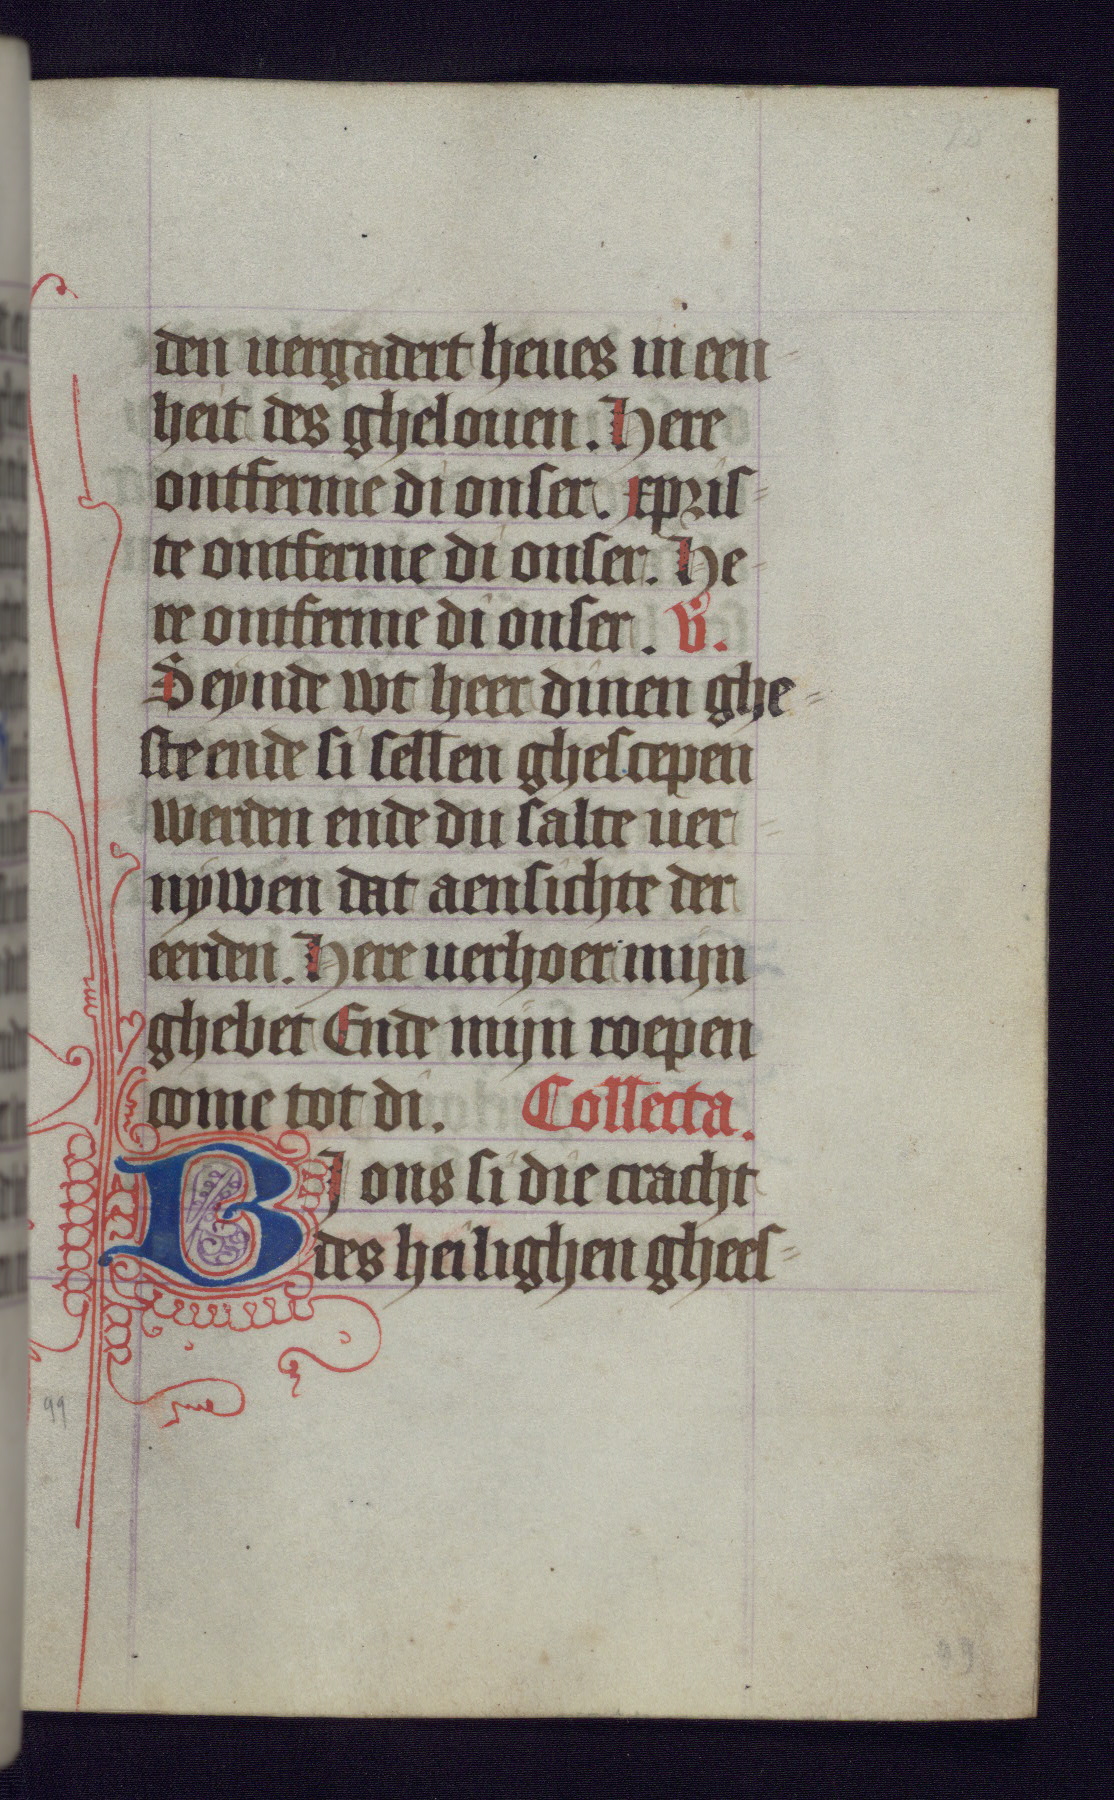 den uergadert heues in een-
heit des ghelouen. Here
ontferme di onser. xpris=
te ontferme di onser. He-
re ontferme di onser. V.
Seynde wt heer dinen ghe=
ste ende si sellen ghescepen
werden ende du salte uer=
nywen dat aensichte der
eerden. Here uerhoer mijn
ghebet Ende mijn roepen
come tot di. Collecta.
BJ ons si die cracht
des heilighen ghees=
99